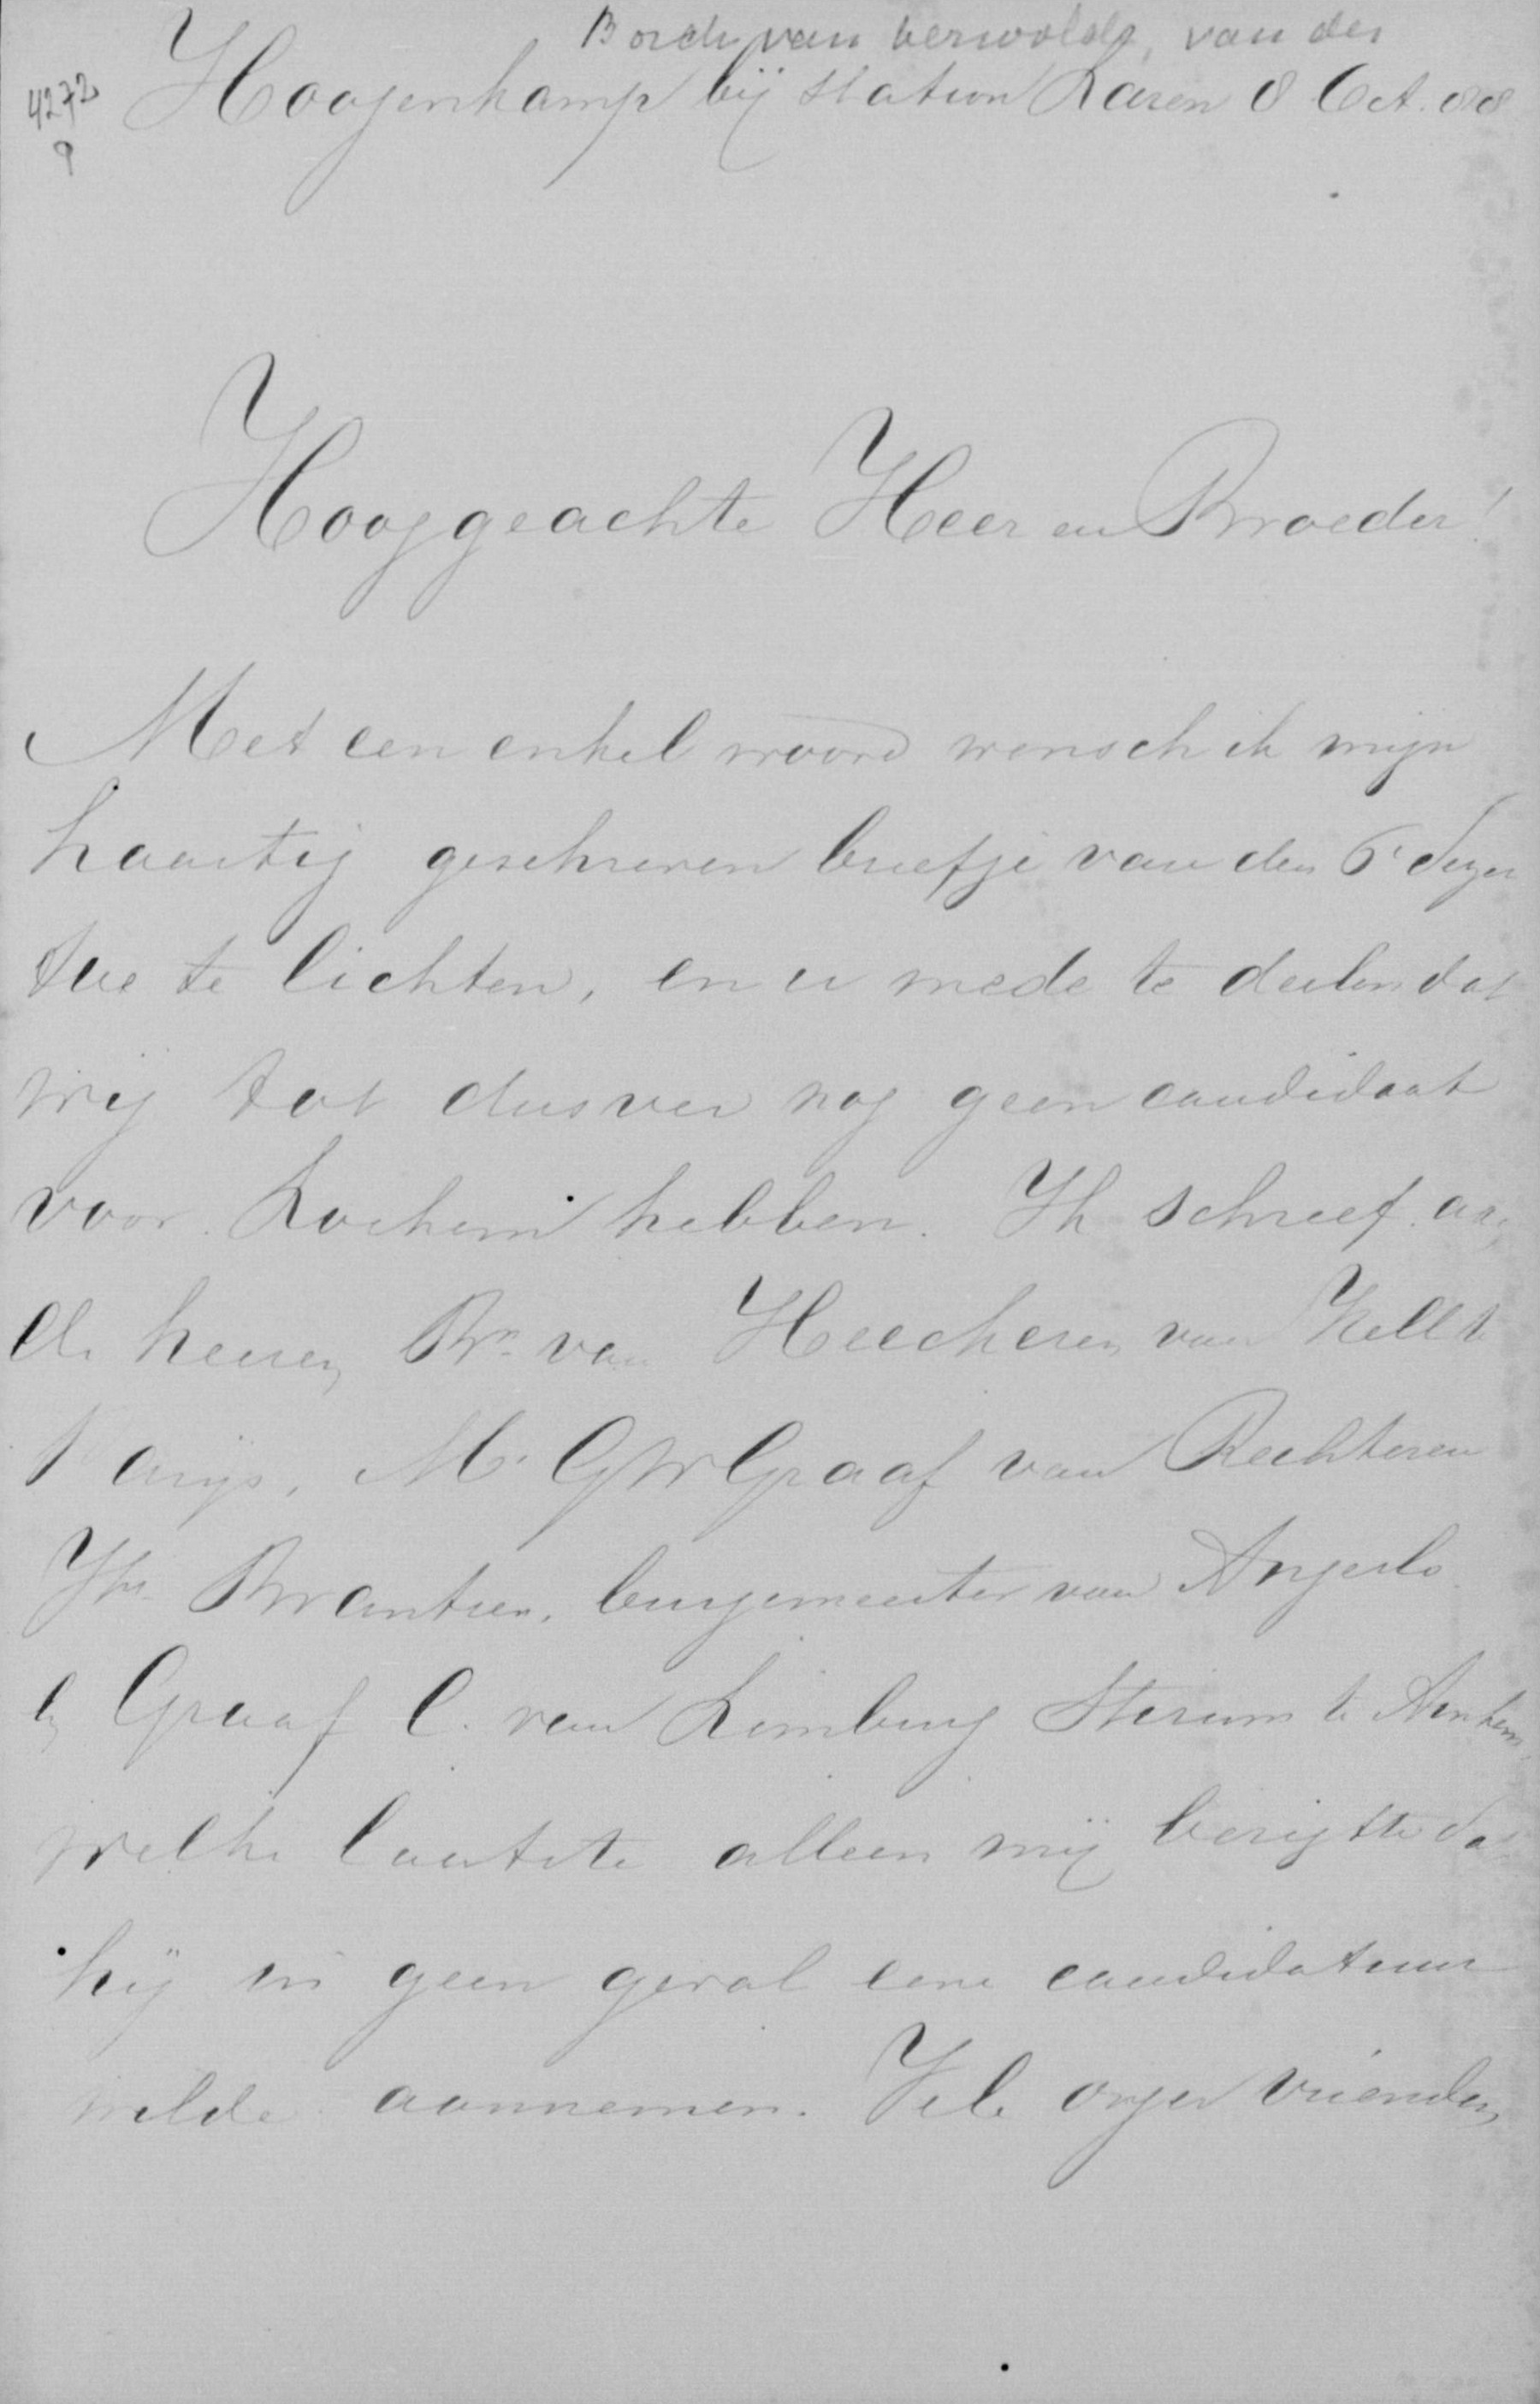 Borch van Verwolde, van der
4272
9
Hoogenkamp bij station Laren 8 Oct. 88
Hooggeachte Heer en Broeder!
Met een enkel woord wensch ik mijn
haastig geschreven briefje van den 6 dezer
toe te lichten, en u mede te deelen dat
wij tot dusver nog geen candidaat
voor Lochem hebben. Ik schreef aan
de heeren Bn van Heeckeren van Kell te
Parijs, Mr GW Graaf van Rechteren
Jhr Brantsen, burgemeester van Angerlo
en Graaf C. van Limburg Stirum te Arnhem,
welke laatste alleen mij berigtte dat
hij in geen geval eene candidatuur
wilde aannemen. Vele onzer vrienden